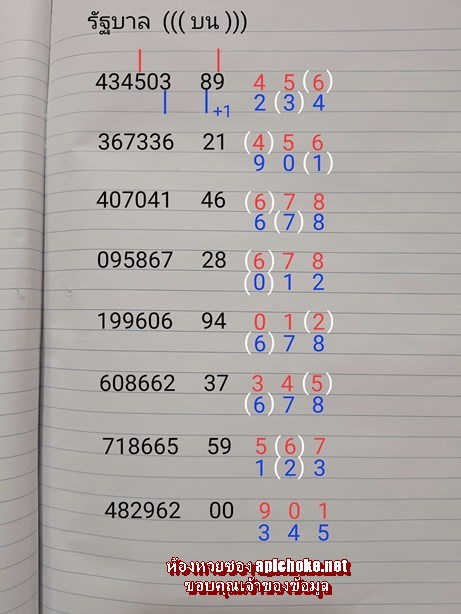 รัฐบาล ((( บน )))
434503 89 4 5 (6)
+1 2 (3) 4
367336 21 (4) 5 6
9 0 (1)
407041 46 (6) 7 8
6 (7) 8
095867 28 (6) 7 8
(0) 1 2
199606 94 0 1 (2)
(6) 7 8
608662 37 3 4 (5)
(6) 7 8
718665 59 5 (6) 7
1 (2) 3
482962 00 9 0 1
3 4 5
ห้องหวยซอง apichoke.net
ขอบคุณเจ้าของข้อมูล